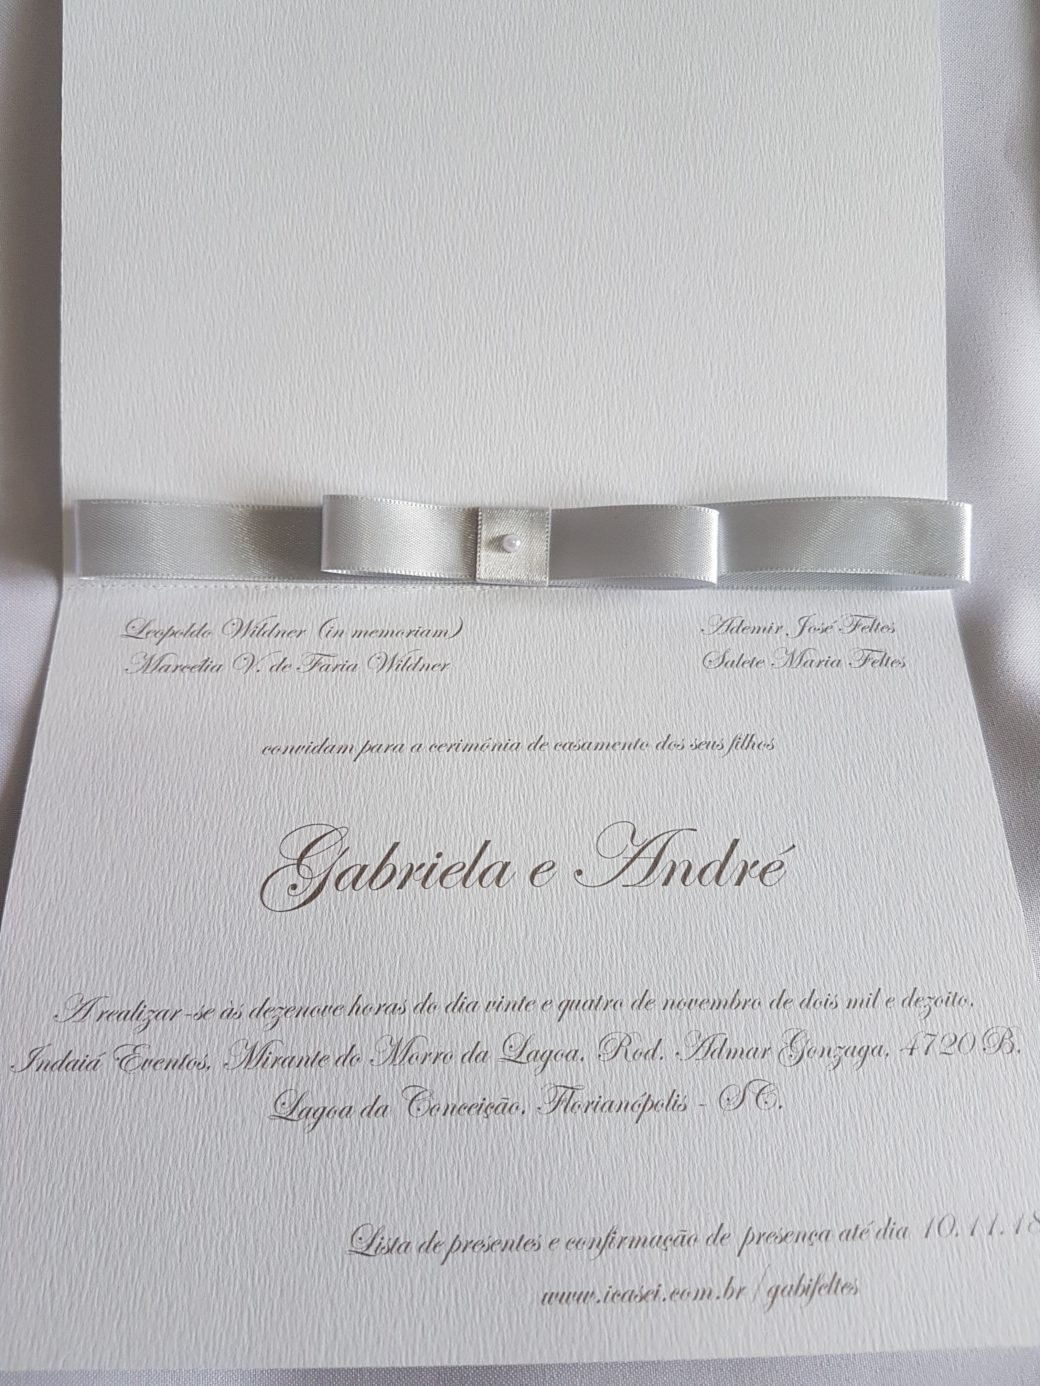 Leopoldo Wildner (in memoriam)
Marcelia V. de Faria Wildner
Ademir José Feltes
Salete Maria Feltes
convidam para a cerimônia de casamento dos seus filhos
Gabriela e André
A realizar-se às dezenove horas do dia vinte e quatro de novembro de dois mil e dezoito.
Indaiá Eventos, Mirante do Morro da Lagoa, Rod. Admar Gonzaga, 4720 B.
Lagoa da Conceição, Florianópolis - SC.
Lista de presentes e confirmação de presença até dia 10.11.18
www.icasei.com.br/gabifeltes